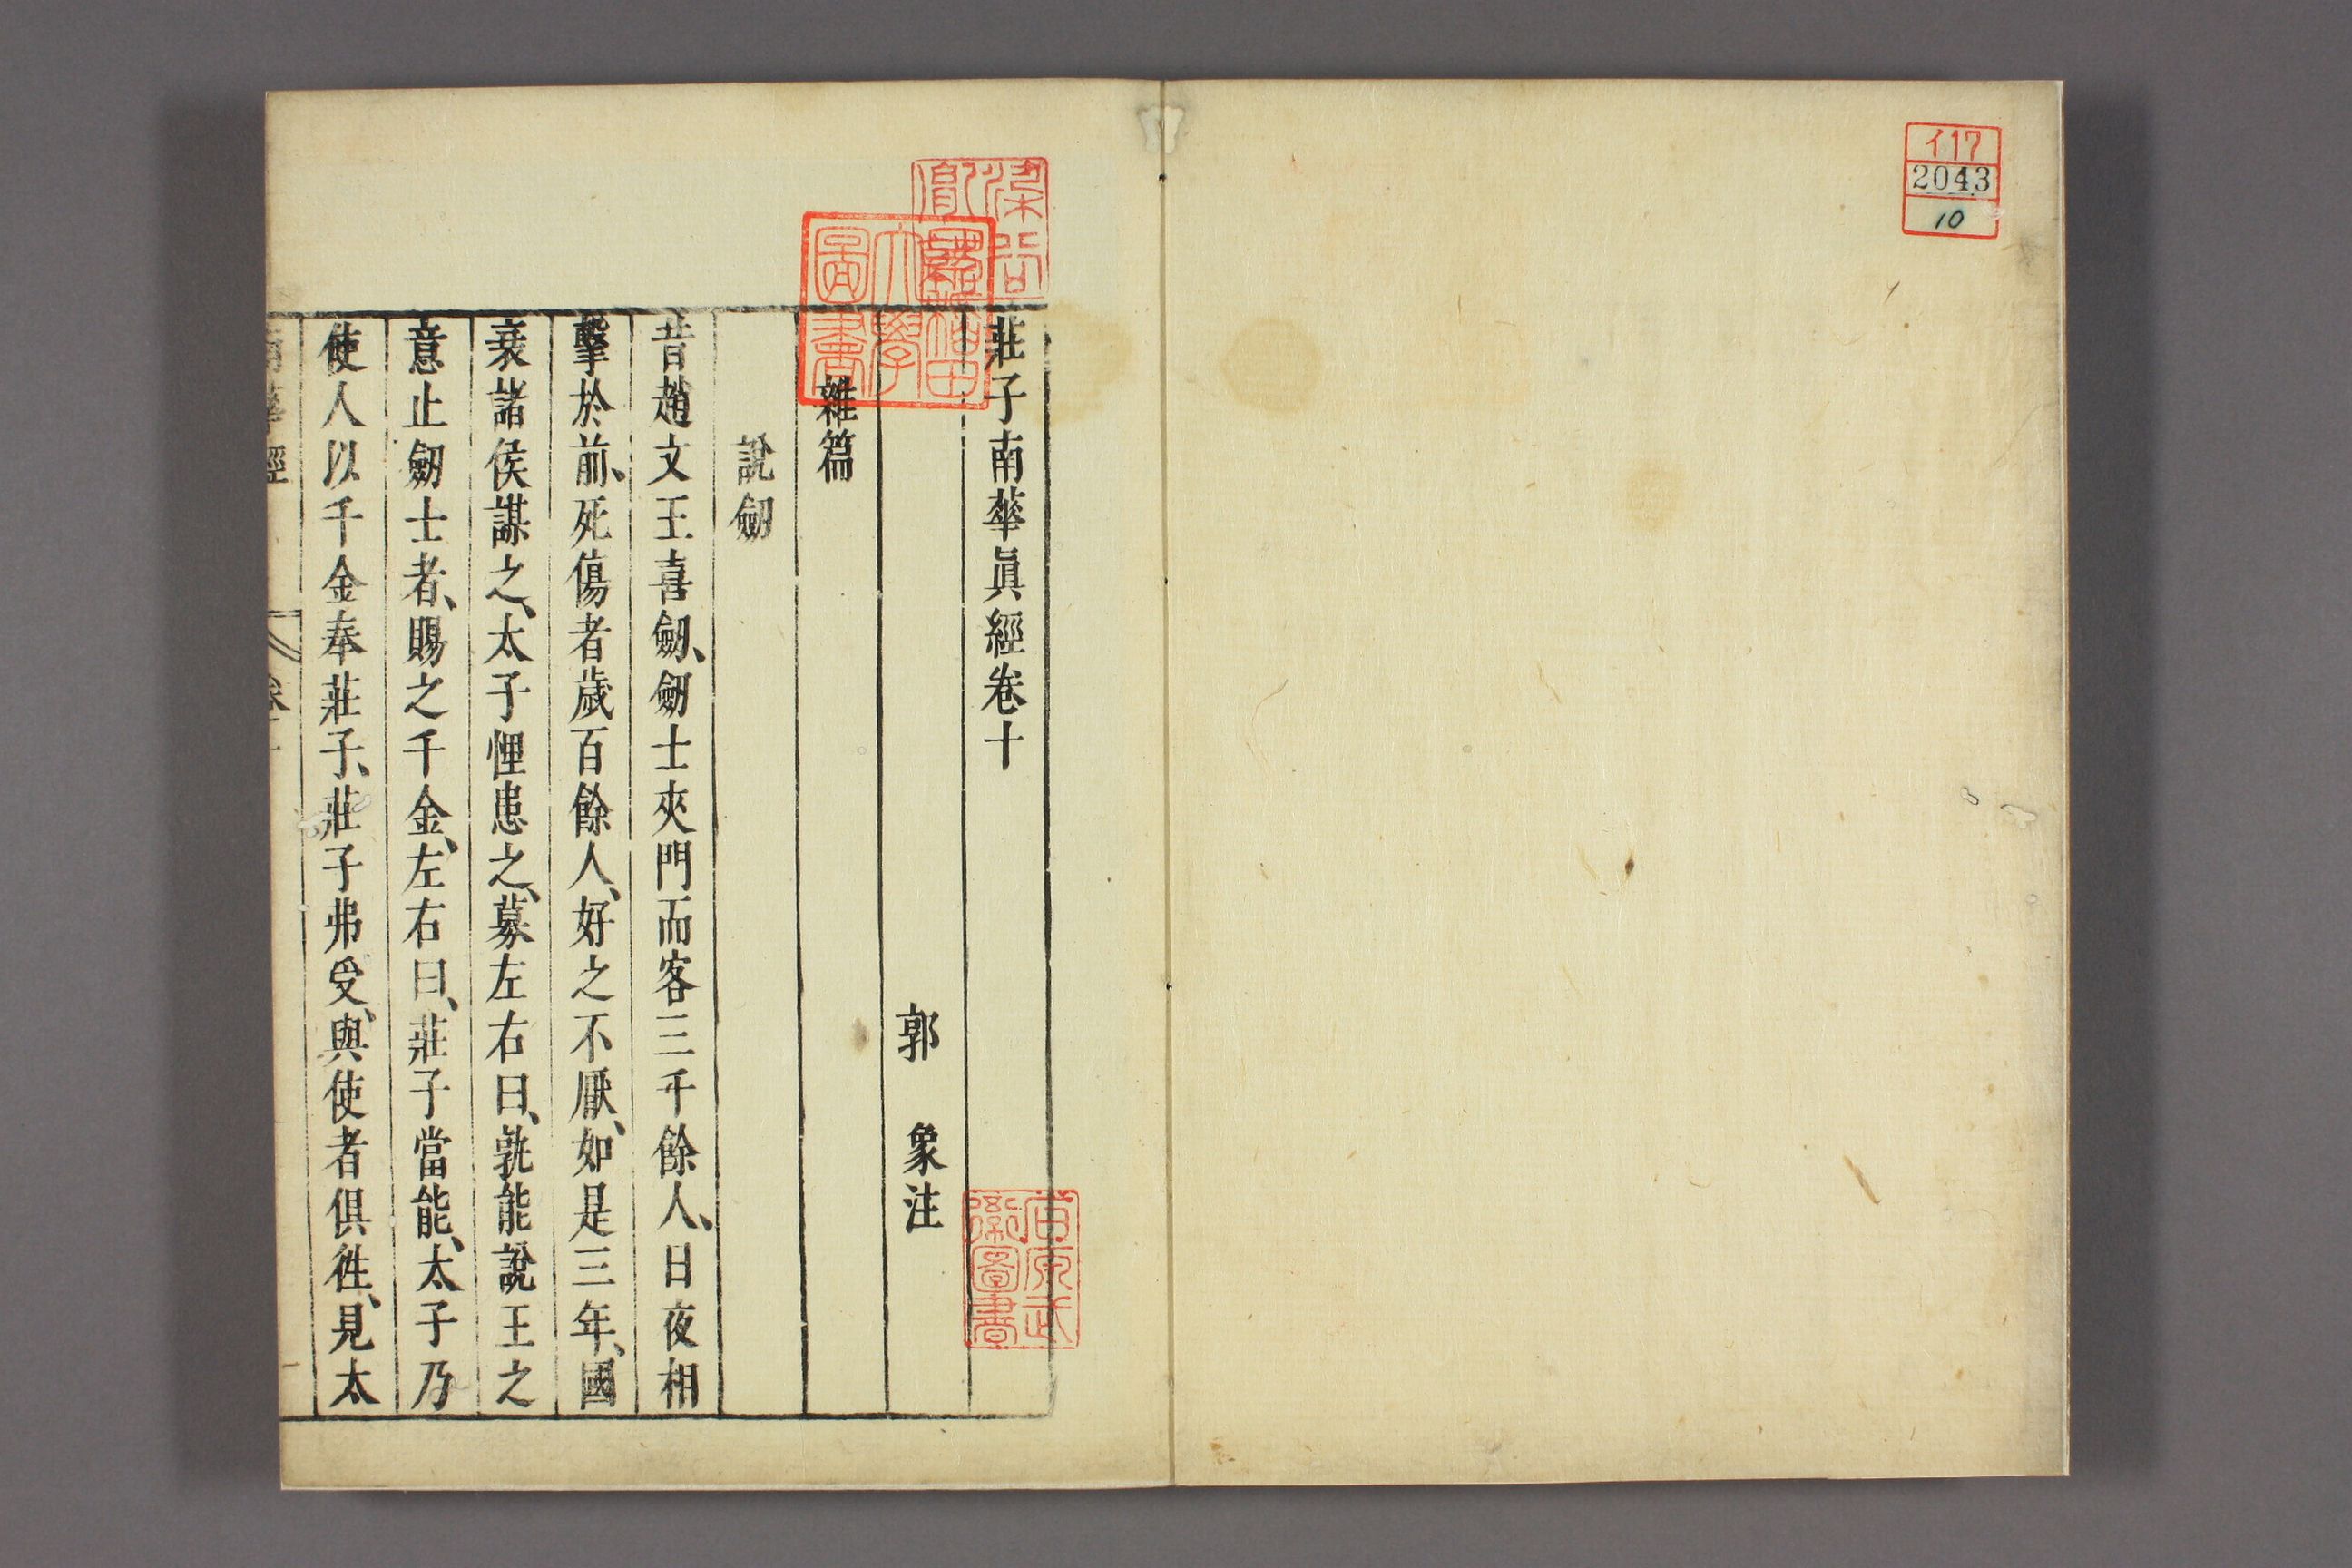 イ17
2043
10
莊子南華眞經卷十
郭　象注
雜篇
說劒
昔趙文王喜劒、劒士夾門而客三千餘人、日夜相
擊於前、死傷者歲百餘人、好之不厭、如是三年、國
衰諸侯謀之、太子悝患之、募左右曰、孰能說王之
意止劒士者、賜之千金、左右曰、莊子當能、太子乃
使人以千金奉莊子、莊子弗受、與使者俱徃、見太
早稻田大學圖書